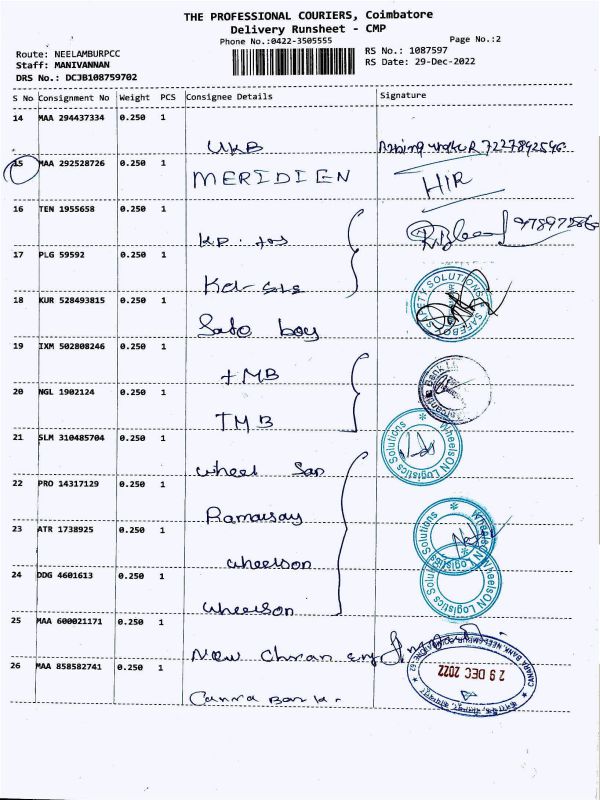 THE PROFESSIONAL COURIERS, Coimbatore
Delivery Runsheet - CMP
Phone No.:0422-3505555
Page No.:2
Route: NEELAMBURPCC
RS No.: 1087597
Staff: MANIVANNAN
RS Date: 29-Dec-2022
DRS No.: DCJB108759702
S No Consignment No Weight PCS Consignee Details Signature
14 MAA 294437334 0.250 1
UKB 7227892546
15 MAA 292528726 0.250 1
MERIDIEN HIR
16 TEN 1955658 0.250 1
KP. tos
17 PLG 59592 0.250 1
18 KUR 528493815 0.250 1
SAFETY SOLUTIONS
SAFEBOY
Safe boy
19 IXM 502808246 0.250 1
TMB
20 NGL 1902124 0.250 1
TMB
21 SLM 310485704 0.250 1
WheelsON Logistics Solutions
wheel San
22 PRO 14317129 0.250 1
Ramarsay
23 ATR 1738925 0.250 1
WheelsON Logistics Solutions
wheelson
24 DDG 4601613 0.250 1
WheelsON Logistics Solutions
wheelson
25 MAA 600021171 0.250 1
New
26 MAA 858582741 0.250 1
CANARA BANK, NEELAMBUR, COIMBATORE-62
29 DEC 2022
Canra Bank.